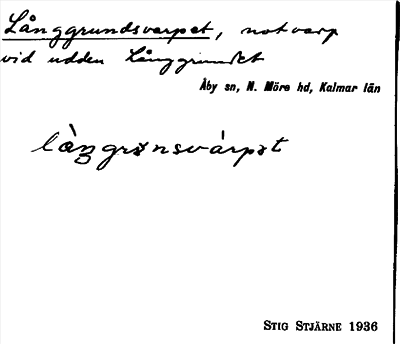 Långgrundsvarpet, notvarp
vid udden Långgrundet
Åby sn, N. Möre hd, Kalmar län
làŋgrɜnsvárpət
STIG STJÄRNE 1936